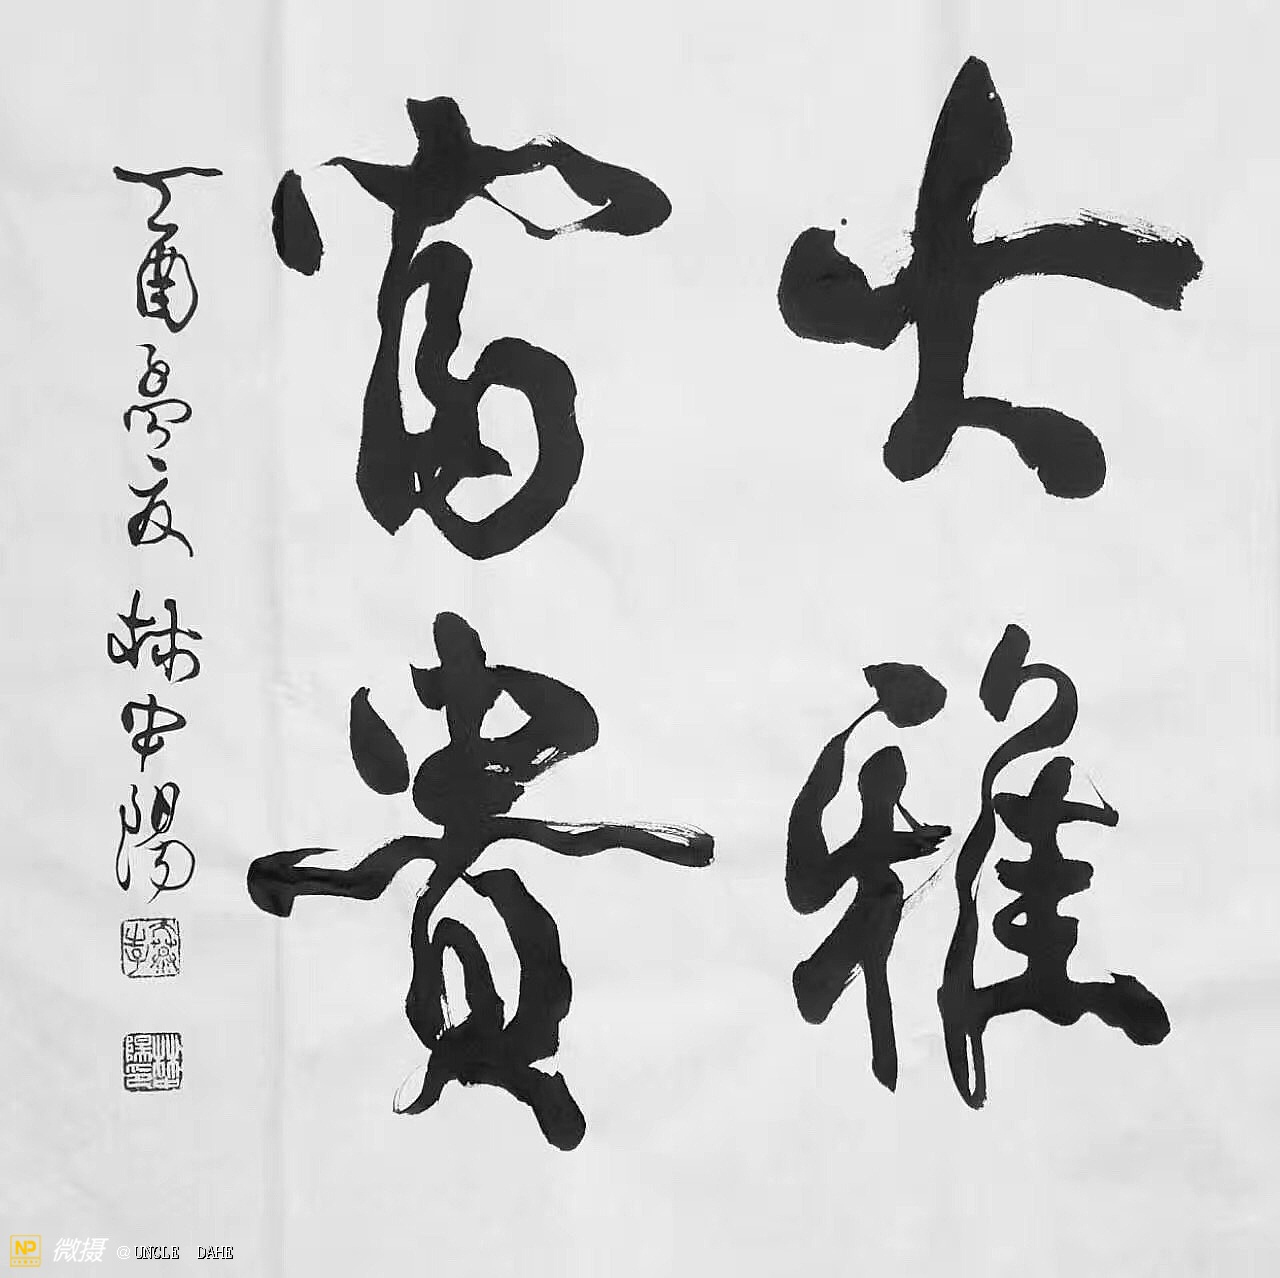 大雅
富貴
丁酉孟夏 林中陽
微摄 @UNCLE DAHE
NP